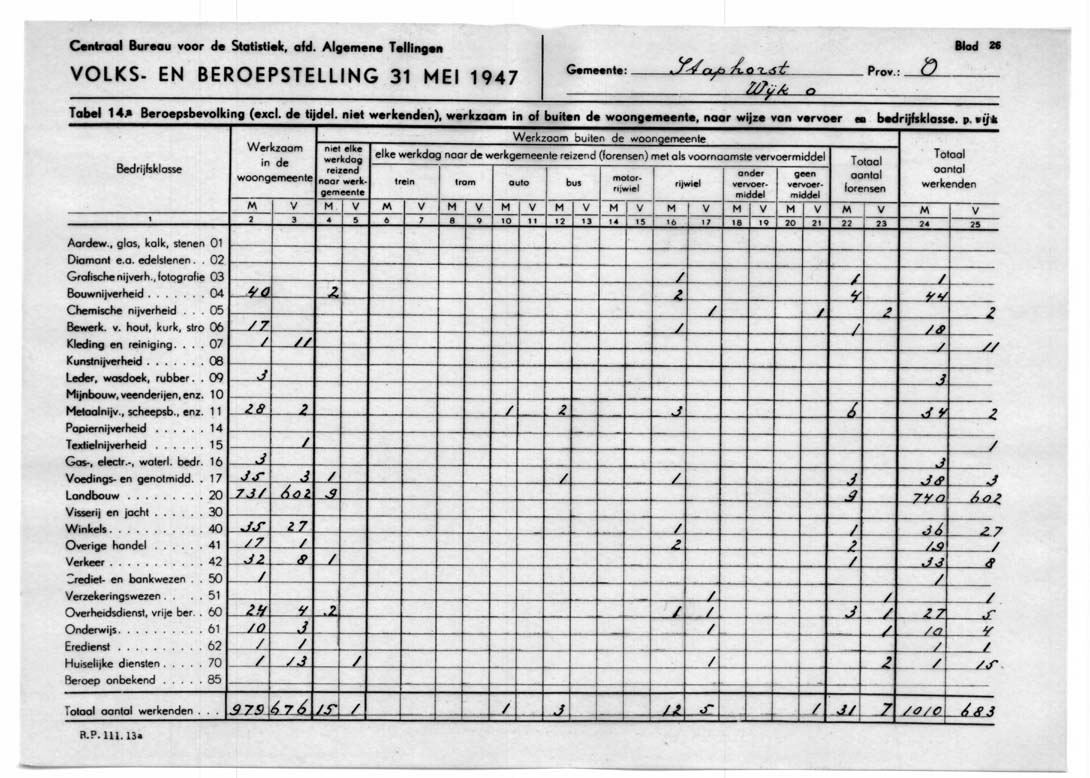 Centraal Bureau voor de Statistiek, afd. Algemene Tellingen
Blad 26
VOLKS- EN BEROEPSTELLING 31 MEI 1947
Gemeente: Staphorst Prov.: O
Wijk o
Tabel 14.a Beroepsbevolking (excl. de tijdel. niet werkenden), werkzaam in of buiten de woongemeente, naar wijze van vervoer en bedrijfsklasse. p. wijk
Bedrijfsklasse
Werkzaam in de woongemeente
Werkzaam buiten de woongemeente
niet elke werkdag reizend naar werkgemeente
elke werkdag naar de werkgemeente reizend (forensen) met als voornaamste vervoermiddel
trein tram auto bus motorrijwiel rijwiel ander vervoermiddel geen vervoermiddel
Totaal aantal forensen
Totaal aantal werkenden
M V M V M V M V M V M V M V M V M V M V M V M V
1 2 3 4 5 6 7 8 9 10 11 12 13 14 15 16 17 18 19 20 21 22 23 24 25
Aardew., glas, kalk, stenen 01
Diamant e.a. edelstenen . . 02
Grafische nijverh., fotografie 03 1 1 1
Bouwnijverheid . . . . . . . 04 40 2 2 4 44
Chemische nijverheid . . . 05 1 1 2 2
Bewerk. v. hout, kurk, stro 06 17 1 1 18
Kleding en reiniging. . . . 07 1 11 1 11
Kunstnijverheid . . . . . . . 08
Leder, wasdoek, rubber. . 09 3 3
Mijnbouw, veenderijen, enz. 10
Metaalnijv., scheepsb., enz. 11 28 2 1 2 3 6 34 2
Papiernijverheid . . . . . . 14
Textielnijverheid . . . . . . 15 1 1
Gas-, electr.-, waterl. bedr. 16 3 3
Voedings- en genotmidd. . 17 35 3 1 1 1 3 38 3
Landbouw . . . . . . . . . 20 731 602 9 9 740 602
Visserij en jacht . . . . . . 30
Winkels. . . . . . . . . . . 40 35 27 1 1 36 27
Overige handel . . . . . . . 41 17 1 2 2 19 1
Verkeer . . . . . . . . . . . 42 32 8 1 1 33 8
Crediet- en bankwezen . . 50 1 1
Verzekeringswezen. . . . . 51 1 1 1
Overheidsdienst, vrije ber. . 60 24 4 2 1 1 3 1 27 5
Onderwijs. . . . . . . . . . 61 10 3 1 1 10 4
Eredienst . . . . . . . . . . 62 1 1 1 1
Huiselijke diensten . . . . . 70 1 13 1 1 2 1 15
Beroep onbekend . . . . . 85
Totaal aantal werkenden . . . 979 676 15 1 1 3 12 5 1 31 7 1010 683
R.P. 111. 13a